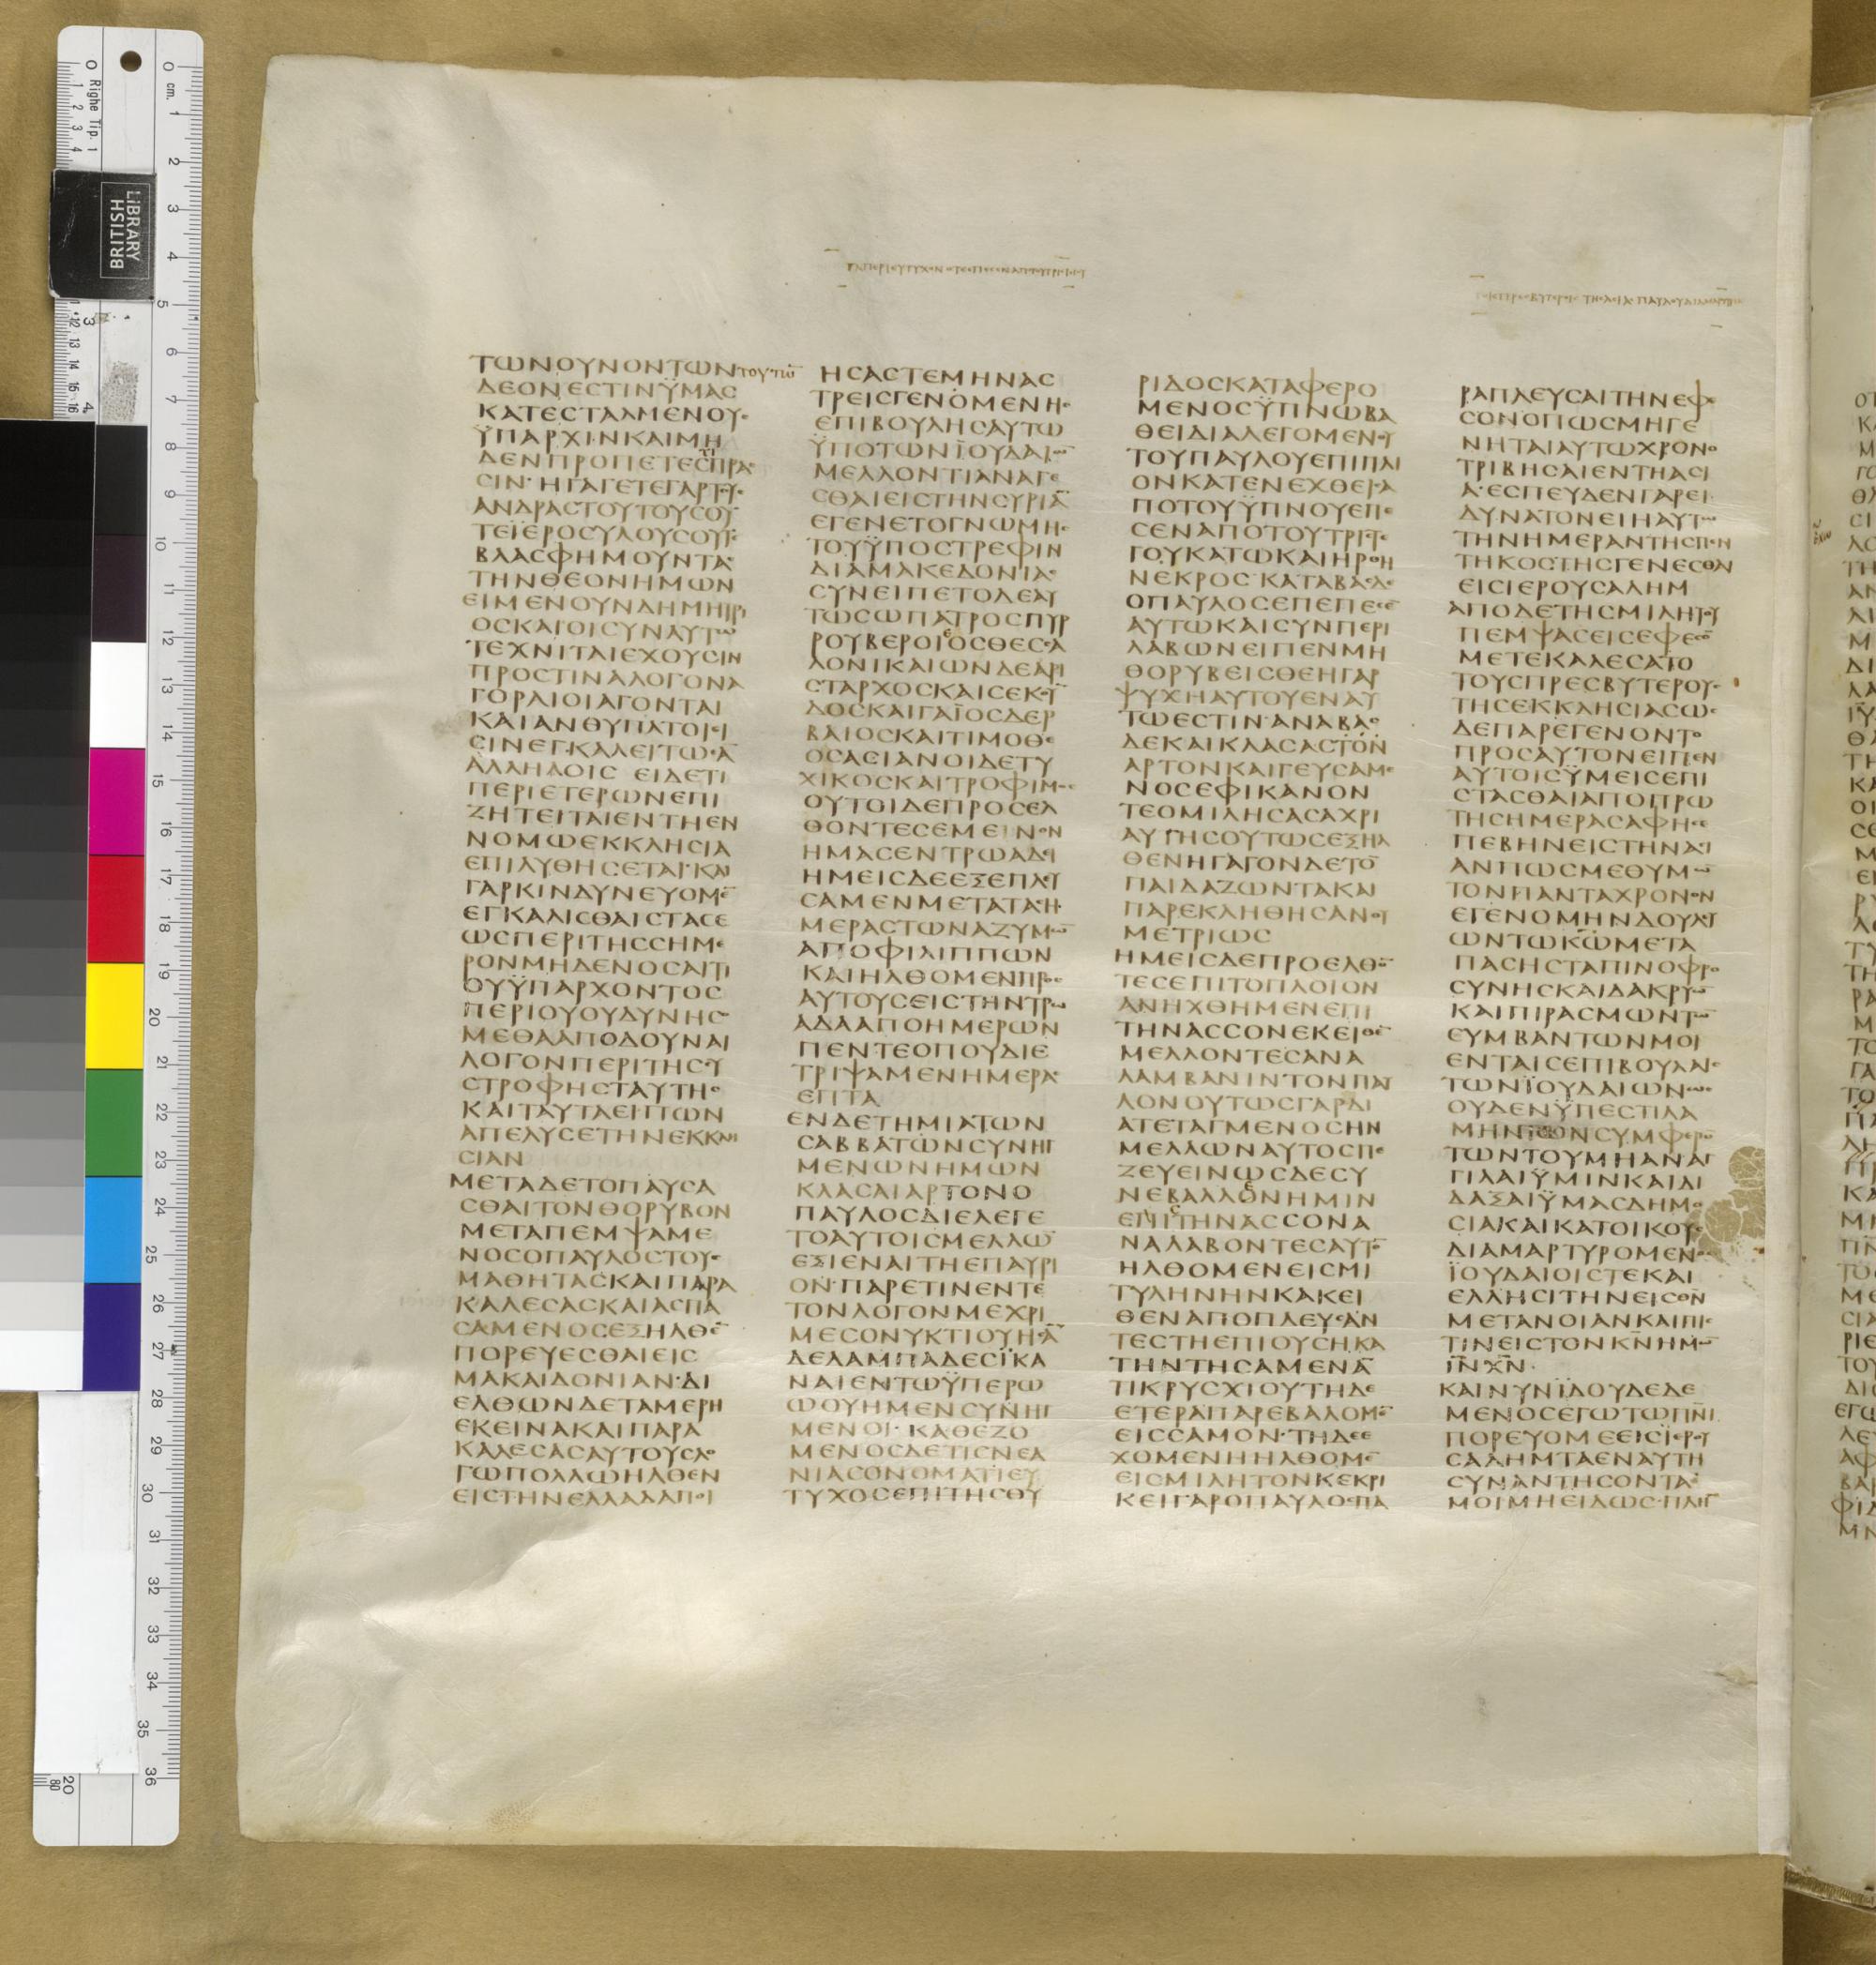 ΤΩΝΟΥΝΟΝΤΩΝΤΟΥΤΩ̅
ΔΕΟΝΕϹΤΙΝΫΜΑϹ
ΚΑΤΕϹΤΑΛΜΕΝΟΥϹ
ΫΠΑΡΧΙΝΚΑΙΜΗ
ΔΕΝΠΡΟΠΕΤΕϹΠΡΑϹ
ϹΙΝ·ΗΓΑΓΕΤΕΓΑΡΤΟΥϹ
ΑΝΔΡΑϹΤΟΥΤΟΥϹΟΥ
ΤΕΪΕΡΟϹΥΛΟΥϹΟΥΤΕ
ΒΛΑϹΦΗΜΟΥΝΤΑϹ
ΤΗΝΘΕΟΝΗΜΩΝ
ΕΙΜΕΝΟΥΝΔΗΜΗΤΡΙ
ΟϹΚΑΙΟΙϹΥΝΑΥΤΩ
ΤΕΧΝΙΤΑΙΕΧΟΥϹΙΝ
ΠΡΟϹΤΙΝΑΛΟΓΟΝΑ
ΓΟΡΑΙΟΙΑΓΟΝΤΑΙ
ΚΑΙΑΝΘΥΠΑΤΟΙΕΙ
ϹΙΝΕΓΚΑΛΕΙΤΩϹΑ̅
ΑΛΛΗΛΟΙϹ ΕΙΔΕΤΙ
ΠΕΡΙΕΤΕΡΩΝΕΠΙ
ΖΗΤΕΙΤΑΙΕΝΤΗΕΝ
ΝΟΜΩΕΚΚΛΗϹΙΑ
ΕΠΙΛΥΘΗϹΕΤΑΙ·ΚΑΙ
ΓΑΡΚΙΝΔΥΝΕΥΟΜΕ̅
ΕΓΚΑΛΙϹΘΑΙϹΤΑϹΕ
ΩϹΠΕΡΙΤΗϹϹΗΜΕ
ΡΟΝΜΗΔΕΝΟϹΑΙΤΙ
ΟΥΫΠΑΡΧΟΝΤΟϹ
ΠΕΡΙΟΥΟΥΔΥΝΗϹΟ
ΜΕΘΑΑΠΟΔΟΥΝΑΙ
ΛΟΓΟΝΠΕΡΙΤΗϹϹΥ
ϹΤΡΟΦΗϹΤΑΥΤΗϹ
ΚΑΙΤΑΥΤΑΕΙΠΩΝ
ΑΠΕΛΥϹΕΤΗΝΕΚΚΛΗ
ϹΙΑΝ
ΜΕΤΑΔΕΤΟΠΑΥϹΑ
ϹΘΑΙΤΟΝΘΟΡΥΒΟΝ
ΜΕΤΑΠΕΜΨΑΜΕ
ΝΟϹΟΠΑΥΛΟϹΤΟΥϹ
ΜΑΘΗΤΑϹΚΑΙΠΑΡΑ
ΚΑΛΕϹΑϹΚΑΙΑϹΠΑ
ϹΑΜΕΝΟϹΕΞΗΛΘΕ̅
ΠΟΡΕΥΕϹΘΑΙΕΙϹ
ΜΑΚΑΙΔΟΝΙΑΝ·ΔΙ
ΕΛΘΩΝΔΕΤΑΜΕΡΗ
ΕΚΕΙΝΑΚΑΙΠΑΡΑ
ΚΑΛΕϹΑϹΑΥΤΟΥϹΛΟ
ΓΩΠΟΛΛΩΗΛΘΕΝ
ΕΙϹΤΗΝΕΛΛΑΔΑΠΟΙ
ΗϹΑϹΤΕΜΗΝΑϹ
ΤΡΕΙϹΓΕΝΟΜΕΝΗϹ
ΕΠΙΒΟΥΛΗϹΑΥΤΩ
ΫΠΟΤΩΝΪΟΥΔΑΙΩ̅
ΜΕΛΛΟΝΤΙΑΝΑΓΕ
ϹΘΑΙΕΙϹΤΗΝϹΥΡΙΑ̅
ΕΓΕΝΕΤΟΓΝΩΜΗϹ
ΤΟΥΫΠΟϹΤΡΕΦΙΝ
ΔΙΑΜΑΚΕΔΟΝΙΑϹ
ϹΥΝΕΙΠΕΤΟΔΕΑΥ
ΤΩϹΩΠΑΤΡΟϹΠΥΡ
ΡΟΥΒΕΡΟΙΕΟϹΘΕϹϹΑ
ΛΟΝΙΚΑΙΩΝΔΕΑΡΙ
ϹΤΑΡΧΟϹΚΑΙϹΕΚΟΥ̅
ΔΟϹΚΑΙΓΑΪΟϹΔΕΡ
ΒΑΙΟϹΚΑΙΤΙΜΟΘΕ
ΟϹΑϹΙΑΝΟΙΔΕΤΥ
ΧΙΚΟϹΚΑΙΤΡΟΦΙΜΟϹ
ΟΥΤΟΙΔΕΠΡΟϹΕΛ
ΘΟΝΤΕϹΕΜΕΙΝΟΝ
ΗΜΑϹΕΝΤΡΩΑΔΙ
ΗΜΕΙϹΔΕΕΞΕΠΛΕΥ
ϹΑΜΕΝΜΕΤΑΤΑϹΗ
ΜΕΡΑϹΤΩΝΑΖΥΜΩ̅
ΑΠΟΦΙΛΙΠΠΩΝ
ΚΑΙΗΛΘΟΜΕΝΠΡΟϹ
ΑΥΤΟΥϹΕΙϹΤΗΝΤΡΩ
ΑΔΑΑΠΟΗΜΕΡΩΝ
ΠΕΝΤΕΟΠΟΥΔΙΕ
ΤΡΙΨΑΜΕΝΗΜΕΡΑϹ
ΕΠΤΑ
ΕΝΔΕΤΗΜΙΑΤΩΝ
ϹΑΒΒΑΤΩΝϹΥΝΗΓ
ΜΕΝΩΝΗΜΩΝ
ΚΛΑϹΑΙΑΡΤΟΝΟ
ΠΑΥΛΟϹΔΙΕΛΕΓΕ
ΤΟΑΥΤΟΙϹΜΕΛΛΩ̅
ΕΞΙΕΝΑΙΤΗΕΠΑΥΡΙ
ΟΝ·ΠΑΡΕΤΙΝΕΝΤΕ
ΤΟΝΛΟΓΟΝΜΕΧΡΙ
ΜΕϹΟΝΥΚΤΙΟΥΗϹΑ̅
ΔΕΛΑΜΠΑΔΕϹΪΚΑ
ΝΑΙΕΝΤΩΫΠΕΡΩ
ΩΟΥΗΜΕΝϹΥΝΗΓ
ΜΕΝΟΙ· ΚΑΘΕΖΟ
ΜΕΝΟϹΔΕΤΙϹΝΕΑ
ΝΙΑϹΟΝΟΜΑΤΙΕΥ
ΤΥΧΟϹΕΠΙΤΗϹΘΥ
ΡΙΔΟϹΚΑΤΑΦΕΡΟ
ΜΕΝΟϹΫΠΝΩΒΑ
ΘΕΙΔΙΑΛΕΓΟΜΕΝΟΥ
ΤΟΥΠΑΥΛΟΥΕΠΙΠΛΙ
ΟΝΚΑΤΕΝΕΧΘΕΙϹΑ
ΠΟΤΟΥΫΠΝΟΥΕΠΕ
ϹΕΝΑΠΟΤΟΥΤΡΙϹΤΕ
ΓΟΥΚΑΤΩΚΑΙΗΡΘΗ
ΝΕΚΡΟϹ·ΚΑΤΑΒΑϹΔΕ
ΟΠΑΥΛΟϹΕΠΕΠΕϹΕ
ΑΥΤΩΚΑΙϹΥΝΠΕΡΙ
ΛΑΒΩΝΕΙΠΕΝΜΗ
ΘΟΡΥΒΕΙϹΘΕΗΓΑΡ
ΨΥΧΗΑΥΤΟΥΕΝΑΥ
ΤΩΕϹΤΙΝ·ΑΝΑΒΑϹ
ΔΕΚΑΙΚΛΑϹΑϹΤΟΝ
ΑΡΤΟΝΚΑΙΓΕΥϹΑΜΕ
ΝΟϹΕΦΙΚΑΝΟΝ
ΤΕΟΜΙΛΗϹΑϹΑΧΡΙ
ΑΥΓΗϹΟΥΤΩϹΕΞΗΛ
ΘΕΝΗΓΑΓΟΝΔΕΤΟ̅
ΠΑΙΔΑΖΩΝΤΑΚΑΙ
ΠΑΡΕΚΛΗΘΗϹΑΝΟΥ
ΜΕΤΡΙΩϹ
ΗΜΕΙϹΔΕΠΡΟΕΛΘΟ̅
ΤΕϹΕΠΙΤΟΠΛΟΙΟΝ
ΑΝΗΧΘΗΜΕΝΕΠΙ
ΤΗΝΑϹϹΟΝΕΚΕΙΘΕ̅
ΜΕΛΛΟΝΤΕϹΑΝΑ
ΛΑΜΒΑΝΙΝΤΟΝΠΑΥ
ΛΟΝΟΥΤΩϹΓΑΡΔΙ
ΑΤΕΤΑΓΜΕΝΟϹΗΝ
ΜΕΛΛΩΝΑΥΤΟϹΠΕ
ΖΕΥΕΙΝΩϹΔΕϹΥ
ΝΕΒΑΛΛΟΝΗΜΙΝ
ΕΠΙΤΗΝΑϹϹΟΝΑ
ΝΑΛΑΒΟΝΤΕϹΑΥΤΟ̅
ΗΛΘΟΜΕΝΕΙϹΜΙ
ΤΥΛΗΝΗΝΚΑΚΕΙ
ΘΕΝΑΠΟΠΛΕΥϹΑΝ
ΤΕϹΤΗΕΠΙΟΥϹΗΚΑ
ΤΗΝΤΗϹΑΜΕΝΑ̅
ΤΙΚΡΥϹΧΙΟΥΤΗΔΕ
ΕΤΕΡΑΠΑΡΕΒΑΛΟΜΕ̅
ΕΙϹϹΑΜΟΝ·ΤΗΔΕΕ
ΧΟΜΕΝΗΗΛΘΟΜΕ̅
ΕΙϹΜΙΛΗΤΟΝΚΕΚΡΙ
ΚΕΙΓΑΡΟΠΑΥΛΟϹΠΑ
ΡΑΠΛΕΥϹΑΙΤΗΝΕΦΕ
ϹΟΝΟΠΩϹΜΗΓΕ
ΝΗΤΑΙΑΥΤΩΧΡΟΝΟ
ΤΡΙΒΗϹΑΙΕΝΤΗΑϹΙ
Α·ΕϹΠΕΥΔΕΝΓΑΡΕΙ
ΔΥΝΑΤΟΝΕΙΗΑΥΤΩ
ΤΗΝΗΜΕΡΑΝΤΗϹΠΕΝ
ΤΗΚΟϹΤΗϹΓΕΝΕϹΘΑΙ
ΕΙϹΙΕΡΟΥϹΑΛΗΜ
ΑΠΟΔΕΤΗϹΜΙΛΗΤΟΥ
ΠΕΜΨΑϹΕΙϹΕΦΕϹΟ̅
ΜΕΤΕΚΑΛΕϹΑΤΟ
ΤΟΥϹΠΡΕϹΒΥΤΕΡΟΥϹ
ΤΗϹΕΚΚΛΗϹΙΑϹΩϹ
ΔΕΠΑΡΕΓΕΝΟΝΤΟ
ΠΡΟϹΑΥΤΟΝΕΙΠΕΝ
ΑΥΤΟΙϹΫΜΕΙϹΕΠΙ
ϹΤΑϹΘΑΙΑΠΟΠΡΩ
ΤΗϹΗΜΕΡΑϹΑΦΗϹΕ
ΠΕΒΗΝΕΙϹΤΗΝΑϹΙ
ΑΝΠΩϹΜΕΘΥΜΩ
ΤΟΝΠΑΝΤΑΧΡΟΝΟΝ
ΕΓΕΝΟΜΗΝΔΟΥΛΕΥ
ΩΝΤΩΚ̅Ω̅ΜΕΤΑ
ΠΑϹΗϹΤΑΠΙΝΟΦΡΟ
ϹΥΝΗϹΚΑΙΔΑΚΡΥΩ̅
ΚΑΙΠΙΡΑϹΜΩΝΤΩ̅
ϹΥΜΒΑΝΤΩΝΜΟΙ
ΕΝΤΑΙϹΕΠΙΒΟΥΛΑΙϹ
ΤΩΝΪΟΥΔΑΙΩΝΩϹ
ΟΥΔΕΝΫΠΕϹΤΙΛΑ
ΜΗΝΤΩΝϹΥΜΦΕΡΟ̅
ΤΩΝΤΟΥΜΗΑΝΑΓ
ΓΙΛΑΙΫΜΙΝΚΑΙΔΙ
ΔΑΞΑΙΫΜΑϹΔΗΜΟ
ϹΙΑΚΑΙΚΑΤΟΙΚΟΥϹ
ΔΙΑΜΑΡΤΥΡΟΜΕΝΟϹ
ΪΟΥΔΑΙΟΙϹΤΕΚΑΙ
ΕΛΛΗϹΙΤΗΝΕΙϹΘ̅Ν̅
ΜΕΤΑΝΟΙΑΝΚΑΙΠΙϹ
ΤΙΝΕΙϹΤΟΝΚ̅Ν̅ΗΜΩ̅
Ι̅Ν̅Χ̅Ν̅·
ΚΑΙΝΥΝΪΔΟΥΔΕΔΕ
ΜΕΝΟϹΕΓΩΤΩΠ̅Ν̅Ι̅
ΠΟΡΕΥΟΜΕΕΙϹΪΕΡΟΥ
ϹΑΛΗΜΤΑΕΝΑΥΤΗ
ϹΥΝΑΝΤΗϹΟΝΤΑ
ΜΟΙΜΗΕΙΔΩϹ·ΠΛΗ̅